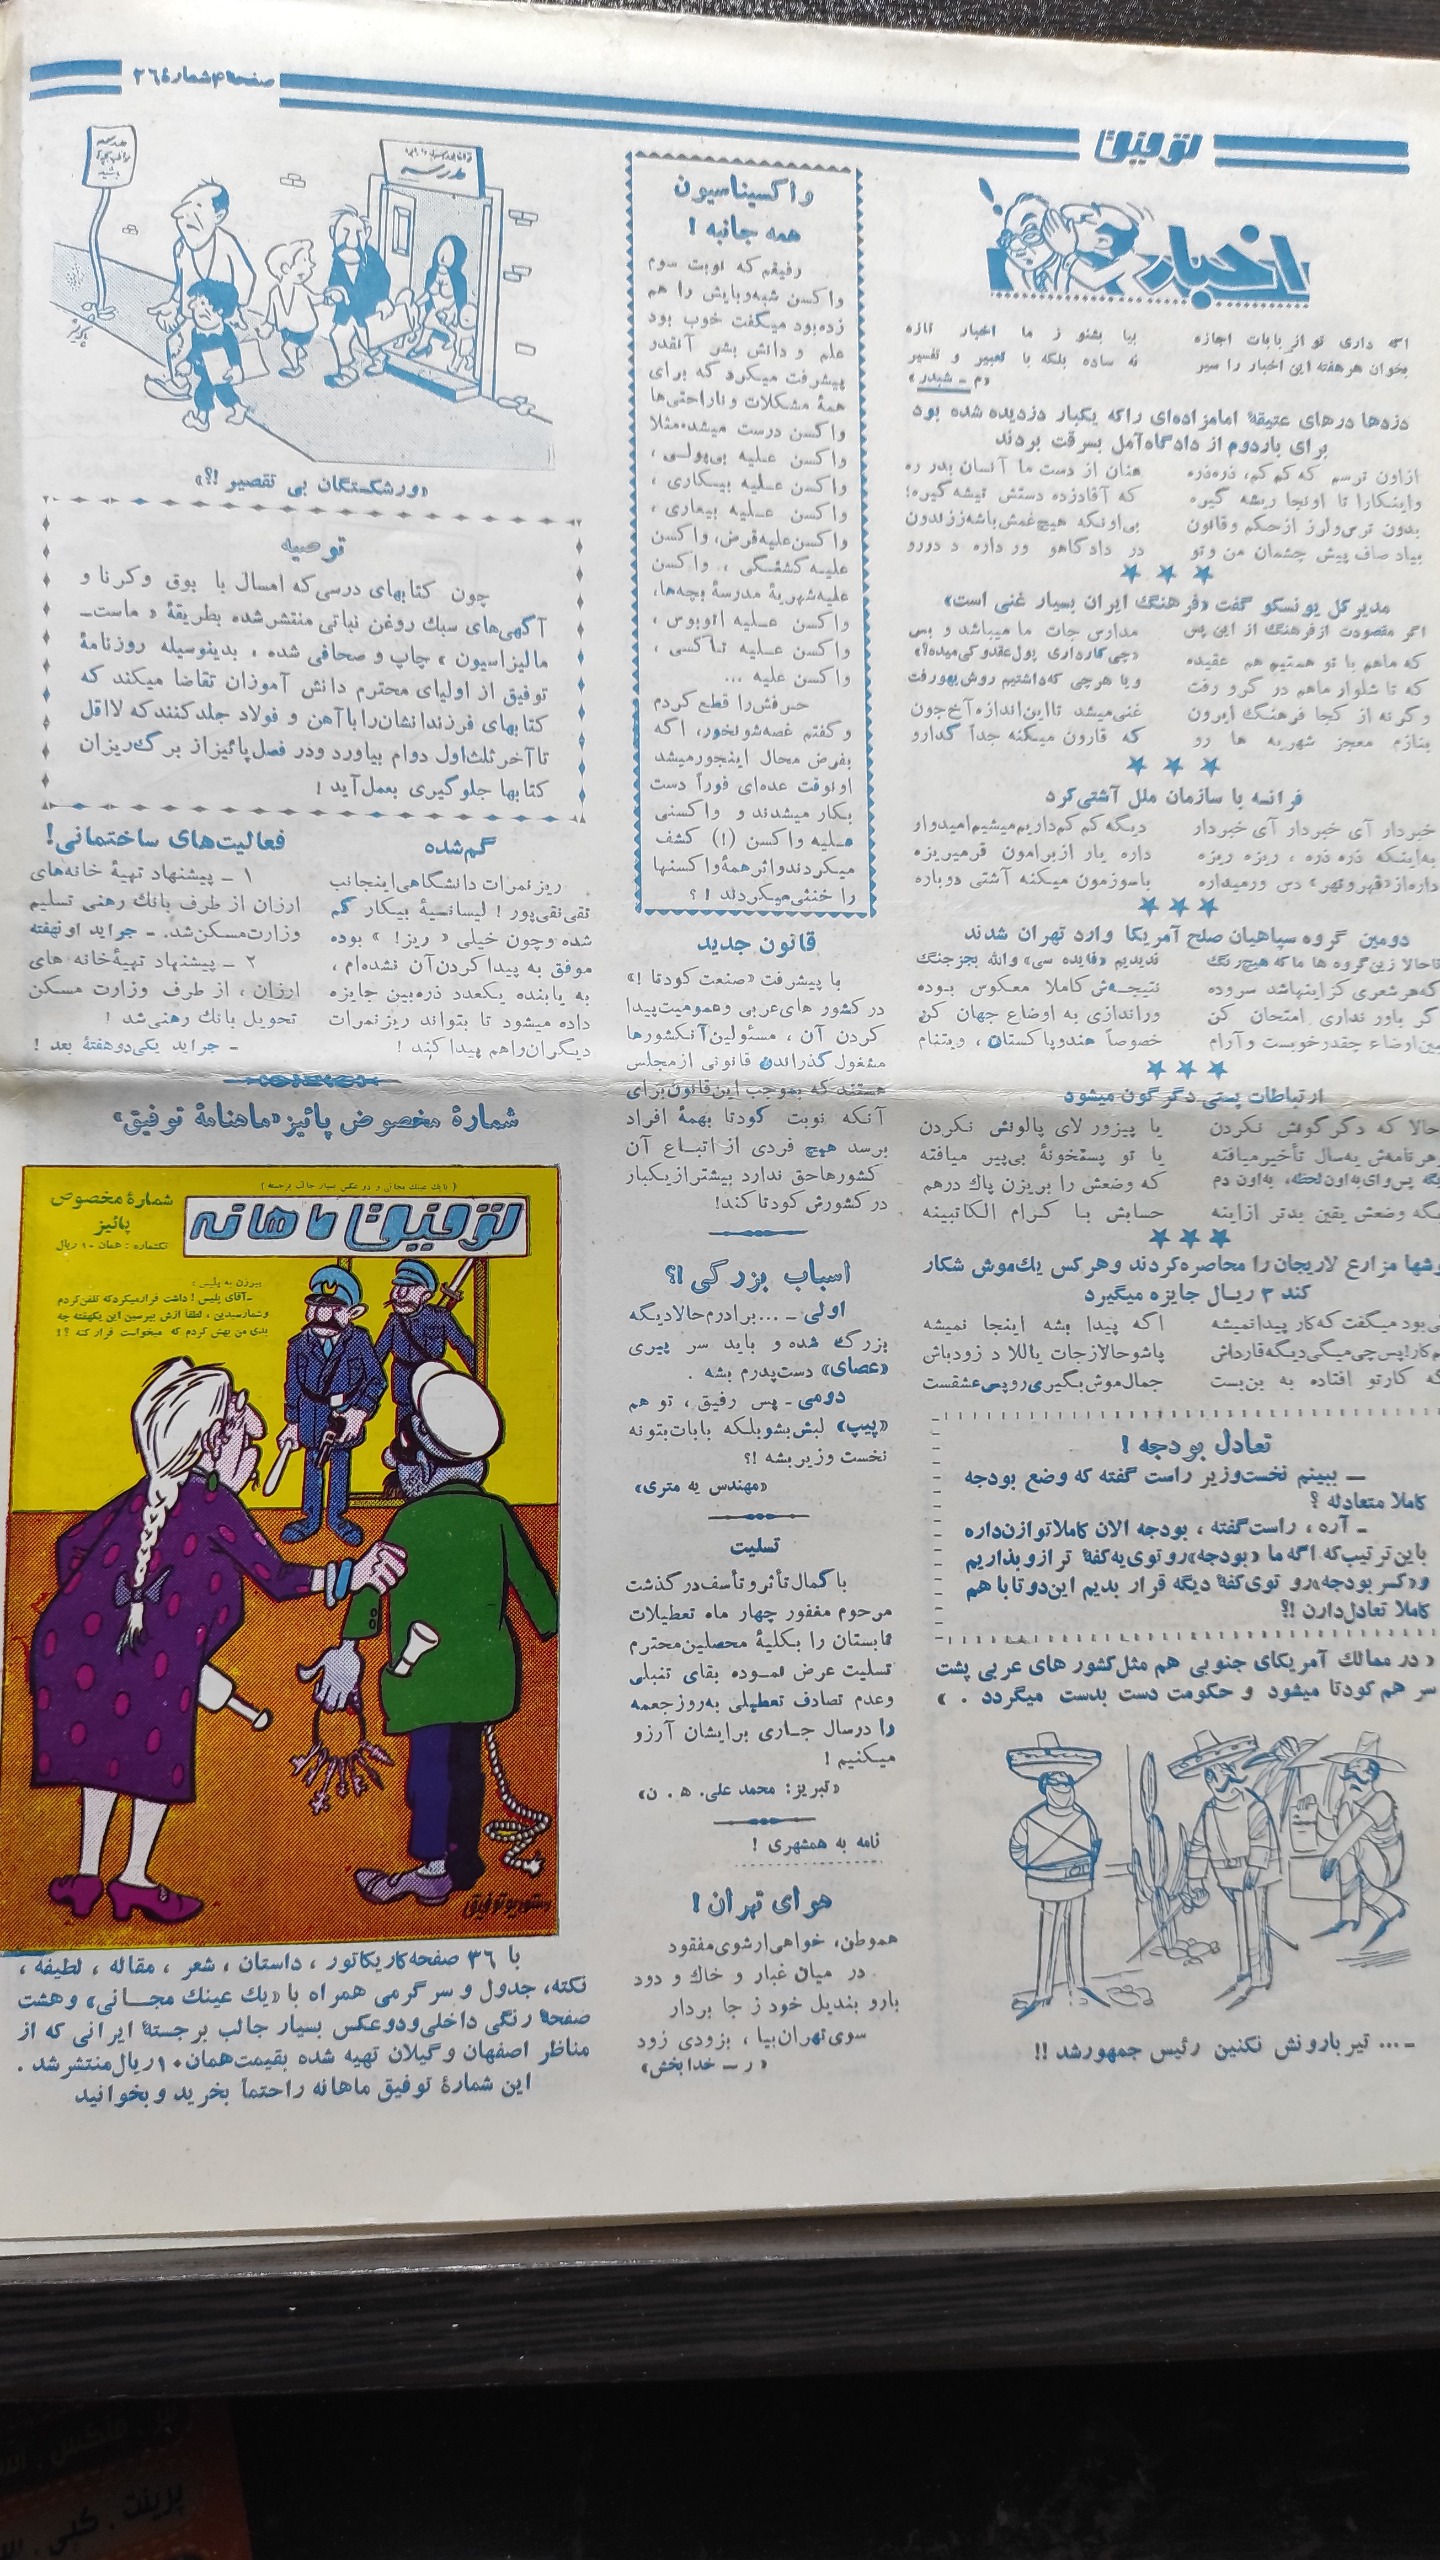 توفیق
صفحه ۴ شماره ۲۶
اخبار
اگه داری تو از بابات اجازه
بیا بشنو ز ما اخبار تازه
بخوان هر هفته این اخبار را سیر
نه ساده بلکه با تعبیر و تفسیر
«م ـ شبدر»
دزدها درهای عتیقهٔ امامزاده‌ای را که یکبار دزدیده شده بود
برای بار دوم از دادگاه آمل بسرقت بردند
از اون ترسم که کم کم، ذره ذره
هنان از دست ما آنسان بدر ره
واینکارا تا اونجا ریشه گیره
که آقا دزده دستش تیشه گیره؛
بدون ترس و لرز از حکم و قانون
بی اونکه هیچ غمش باشه ز زندون
بیاد صاف پیش چشمان من و تو
در دادگاهو ور داره د دورو
مدیر کل یونسکو گفت «فرهنگ ایران بسیار غنی است»
اگر مقصودت از فرهنگ از این پس
مدارس جات ما میباشد و بس
که ماهم با تو هستیم هم عقیده
«چی کارداری پول عقدو کی میده؟»
که تا شلوار ماهم در گرو رفت
و یا هر چی که داشتیم روش یهو رفت
و گر نه از کجا فرهنگ ایرون
غنی میشد تا این اندازه آخ جون
بنازم معجز شهریه ها رو
که قارون میکنه جداً گدارو
فرانسه با سازمان ملل آشتی کرد
خبردار آی خبردار آی خبردار
دیگه کم کم داریم میشیم امیدوار
به اینکه ذره ذره ، ریزه ریزه
داره یار از برامون قر میریزه
داره از «قهر و تهر» دس ورمیداره
با سوزمون میکنه آشتی دوباره
دومین گروه سپاهیان صلح آمریکا وارد تهران شدند
تا حالا زین گروه ها ما که هیچ رنگ
ندیدیم «فایده سی» والله بجز جنگ
که هر شعری کز اینها شد سروده
نتیجه‌ش کاملا معکوس بوده
گر باور نداری امتحان کن
وراندازی به اوضاع جهان کن
ببین اوضاع چقدر خوبست و آرام
خصوصاً هند و پاکستان ، ویتنام
ارتباطات پستی دگرگون میشود
حالا که دگرگونش نکردن
یا پیزور لای پالونش نکردن
هر نامه‌ش یه سال تأخیر میافته
یا تو پستخونهٔ بی‌پیر میافته
دیگه پس وای به اون لحظه، به اون دم
که وضعش را بریزن پاك درهم
وضعش یقین بدتر از اینه
حسابش با کرام الکاتبینه
موشها مزارع لاریجان را محاصره کردند و هر کس یك موش شکار
کند ۳ ریال جایزه میگیرد
بود میگفت که کار پیدا نمیشه
اگه پیدا بشه اینجا نمیشه
کار! پس چی میگی دیگه قارداش
پاشو حالا ز جات یاللا د زودباش
که کار تو افتاده به بن بست
جمال موش بگیری رو پس عشقست
تعادل بودجه !
ـ ببینم نخست‌وزیر راست گفته که وضع بودجه
کاملا متعادله ؟
ـ آره ، راست گفته ، بودجه الان کاملا توازن داره
باین ترتیب که اگه ما «بودجه» رو توی یه کفهٔ ترازو بذاریم
و «کسر بودجه» رو توی کفهٔ دیگه قرار بدیم این دوتا با هم
کاملا تعادل دارن !؟
«در ممالك آمریکای جنوبی هم مثل کشور های عربی پشت
سر هم کودتا میشود و حکومت دست بدست میگردد . »
ـ ... تیربارونش نکنین رئیس جمهور شد !!
واکسیناسیون
همه جانبه !
رفیقم که نوبت سوم
واکسن شبه وبایش را هم
زده بود میگفت خوب بود
علم و دانش بشر آنقدر
پیشرفت میکرد که برای
همهٔ مشکلات و ناراحتی‌ها
واکسن درست میشد، مثلا
واکسن علیه بی‌پولی ،
واکسن علیه بیکاری ،
واکسن علیه بیماری ،
واکسن علیه قرض، واکسن
علیه کشنگی ، واکسن
علیه شهریهٔ مدرسهٔ بچه‌ها،
واکسن علیه اتوبوس ،
واکسن علیه تاکسی ،
واکسن علیه ...
حرفش را قطع کردم
و گفتم غصه شو نخور، اگه
بفرض محال اینجور میشد
اونوقت عده‌ای فوراً دست
بکار میشدند و واکسنی
علیه واکسن (!) کشف
میکردند و اثر همهٔ واکسنها
را خنثی میکردند ! ؟
قانون جدید
با پیشرفت «صنعت کودتا !»
در کشور های عربی و عمومیت پیدا
کردن آن ، مسئولین آنکشورها
مشغول گذراندن قانونی از مجلس
هستند که بموجب این قانون برای
آنکه نوبت کودتا بهمهٔ افراد
برسد هیچ فردی از اتباع آن
کشورها حق ندارد بیشتر از یکبار
در کشورش کودتا کند!
اسباب بزرگی !؟
اولی ـ ... برادرم حالا دیگه
بزرگ شده و باید سر پیری
«عصای» دست پدرم بشه .
دومی ـ پس رفیق ، تو هم
«پیپ» لبش بشو بلکه بابات بتونه
نخست وزیر بشه !؟
«مهندس یه متری»
تسلیت
با کمال تأثر و تأسف در گذشت
مرحوم مغفور چهار ماه تعطیلات
تابستان را بکلیهٔ محصلین محترم
تسلیت عرض نموده بقای تنبلی
و عدم تصادف تعطیلی به روز جمعه
را در سال جاری برایشان آرزو
میکنیم !
«تبریز: محمد علی. ه . ن»
نامه به همشهری !
هوای تهران !
هموطن، خواهی ارشوی مفقود
در میان غبار و خاك و دود
بارو بندیل خود ز جا بردار
سوی تهران بیا ، بزودی زود
« ر ـ خدابخش»
مدرسه
«ورشکستگان بی تقصیر !؟»
توصیه
چون کتابهای درسی که امسال با بوق و کرنا و
آگهی‌های سبك روغن نباتی منتشر شده بطریقهٔ « ماست‌ـ
مالیزاسیون » چاپ و صحافی شده ، بدینوسیله روزنامهٔ
توفیق از اولیای محترم دانش آموزان تقاضا میکند که
کتابهای فرزندانشان را با آهن و فولاد جلد کنند که لااقل
تا آخر ثلث اول دوام بیاورد و در فصل پائیز از برگ ریزان
کتابها جلوگیری بعمل آید !
گم شده
ریز نمرات دانشگاهی اینجانب
تقی نقی‌پور ! لیسانسیهٔ بیکار گم
شده و چون خیلی « ریز! » بوده
موفق به پیدا کردن آن نشده‌ام ،
به یابنده یکعدد ذره بین جایزه
داده میشود تا بتواند ریز نمرات
دیگران را هم پیدا کند !
فعالیت‌های ساختمانی!
۱ ـ پیشنهاد تهیهٔ خانه‌های
ارزان از طرف بانك رهنی تسلیم
وزارت مسکن شد. ـ جراید اونهفته
۲ ـ پیشنهاد تهیهٔ خانه های
ارزان ، از طرف وزارت مسکن
تحویل بانك رهنی شد !
ـ جراید یکی دو هفتهٔ بعد !
شمارهٔ مخصوص پائیز «ماهنامهٔ توفیق»
( با یك عینك مجانی و دو عکس بسیار جالب برجسته )
توفیق ماهانه
شمارهٔ مخصوص
پائیز
تکشماره : همان ۱۰ ریال
پیرزن به پلیس :
ـ آقای پلیس ! داشت فرار میکرد که تلفن کردم
و شما رسیدین ، لطفاً ازش بپرسین این یکهفته چه
بدی من بهش کردم که میخواست فرار کنه ؟!
با ۳۶ صفحه کاریکاتور ، داستان ، شعر ، مقاله ، لطیفه ،
نکته، جدول و سرگرمی همراه با «یك عینك مجانی» و هشت
صفحهٔ رنگی داخلی و دو عکس بسیار جالب برجستهٔ ایرانی که از
مناظر اصفهان و گیلان تهیه شده بقیمت همان ۱۰ ریال منتشر شد .
این شمارهٔ توفیق ماهانه را حتماً بخرید و بخوانید